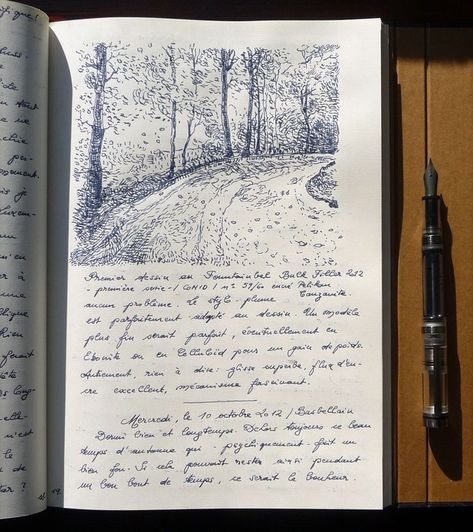 Premier dessin au Fountainbel Bulk Filler 2012
- première série -/ CONID / n° 59/60 encré Pelikan
Tanzanite.
aucun problème. Le style plume
est parfaitement adapté au dessin. Un modèle
plus fin serait parfait, éventuellement en
Ebonite ou en Celluloïd pour un gain de poids.
Autrement, rien à dire: glisse superbe, flux d'en-
cre excellent, mécanisme fascinant.
Mercredi, le 10 octobre 2012 / Barbellain
Dormi bien et longtemps. Dehors toujours ce beau
temps d'automne qui - psychiquement - fait un
bien fou. Si cela pouvait rester ainsi pendant
un bon bout de temps, ce serait le bonheur.